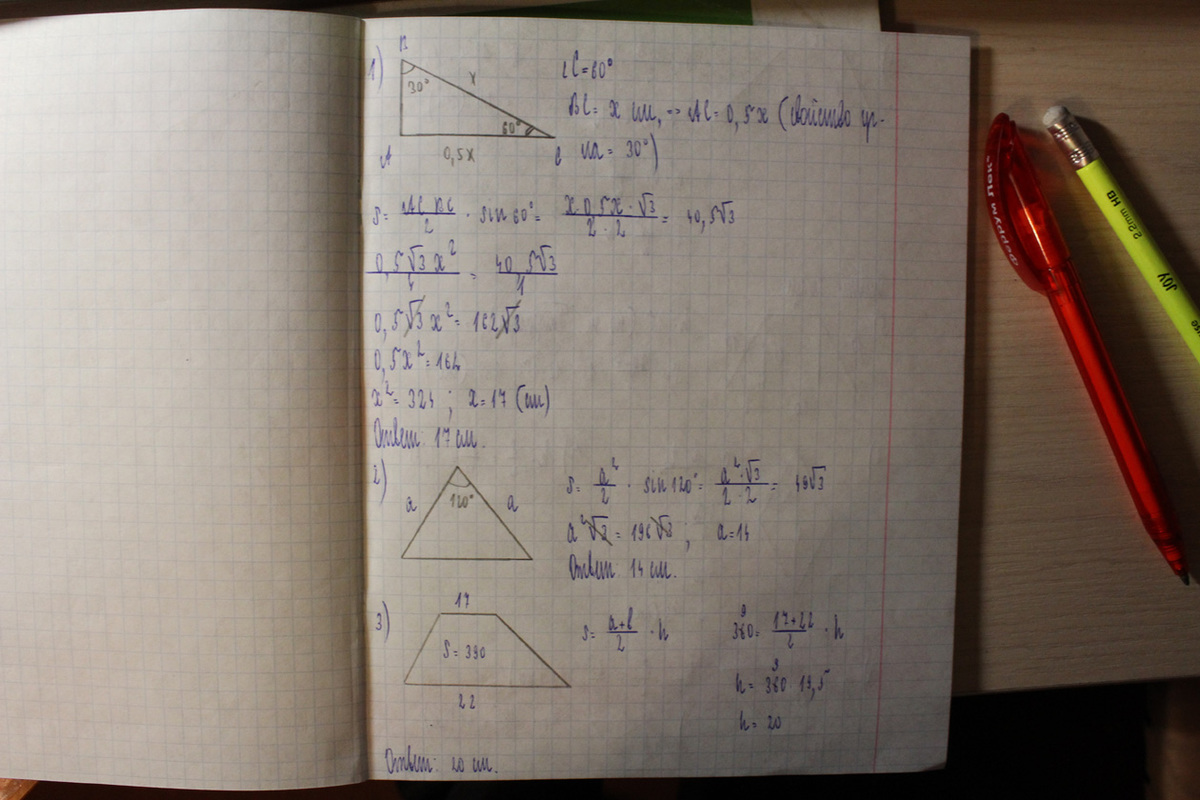 1)
B
30°
x
60°
A
0,5x
C
∠C = 60°
BC = x см, => AC = 0,5x (свойство уг-
ла = 30°)
S = AC BC / 2 · sin 60° = x 0,5x · √3 / 2 · 2 = 40,5√3
0,5√3 x² / 4 = 40,5√3 / 1
0,5√3 x² = 162√3
0,5x² = 162
x² = 324 ; x = 17 (см)
Ответ: 17 см.
2)
120°
a
a
S = a² / 2 · sin 120° = a² · √3 / 2 · 2 = 49√3
a²√3 = 196√3 ; a = 14
Ответ 14 см.
3)
17
S = 390
22
S = a + b / 2 · h
390 = 17 + 22 / 2 · h
h = 390 : 19,5
h = 20
Ответ: 20 см.
2.2mm HB
JOY